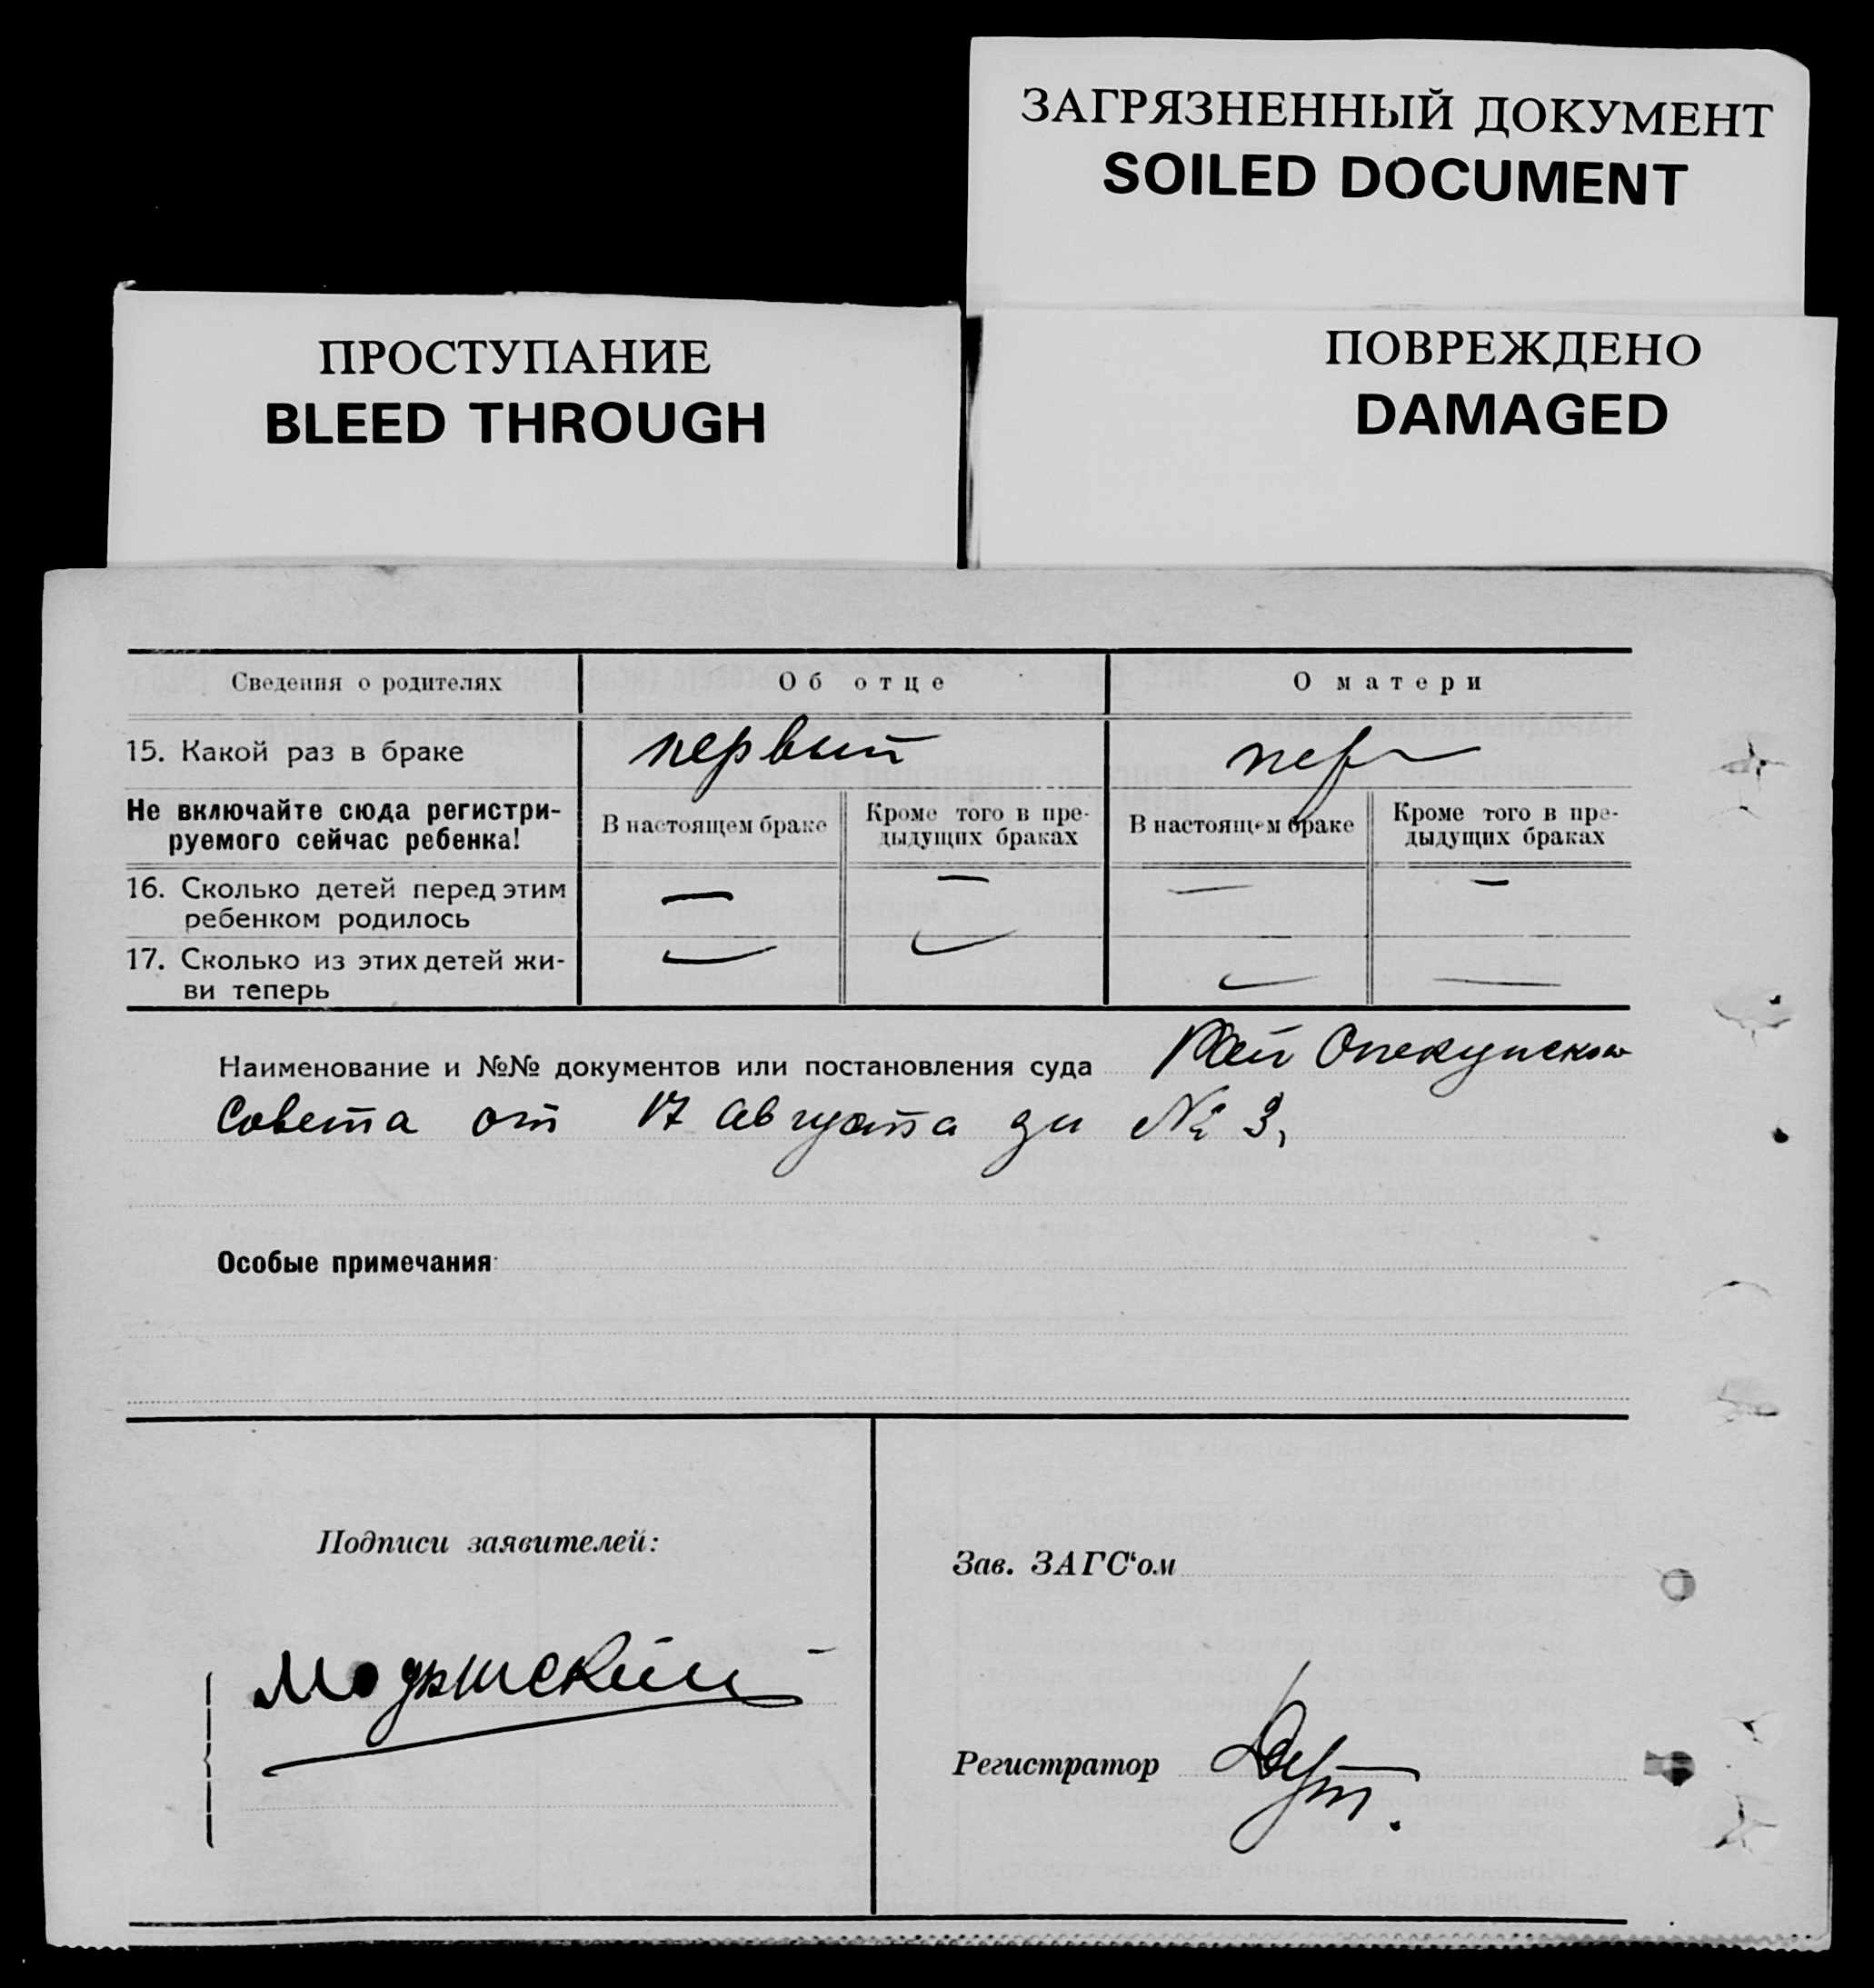 ЗАГРЯЗНЕННЫЙ ДОКУМЕНТ
SOILED DOCUMENT
ПРОСТУПАНИЕ
BLEED THROUGH
ПОВРЕЖДЕНО
DAMAGED
Сведения о родителях Об отце О матери
15. Какой раз в браке первый пер
Не включайте сюда регистри-
руемого сейчас ребенка!
В настоящем браке
Кроме того в пре-
дыдущих браках
В настоящем браке
Кроме того в пре-
дыдущих браках
16. Сколько детей перед этим — — — —
ребенком родилось
17. Сколько из этих детей жи- — — — —
ви теперь
Наименование и №№ документов или постановления суда Рай Опекунском
Совета от 17 августа за № 3,
Особые примечания
Подписи заявителей:
Зав. ЗАГС‘ом
Регистратор